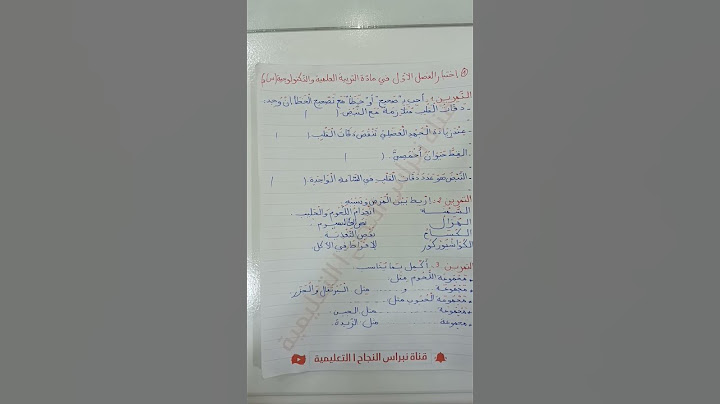 اختبار الفصل الأول في مادة التربية العلمية والتكنولوجية (س4)
التمرين 1: أجب بـ"صحيح" أو "خطأ" مع تصحيح الخطأ إن وجد:
- دقات القلب متلازمة مع النبض. ( )
- عند زيادة الجهد العضلي تنقص دقات القلب. ( )
- القط حيوان أخمصي. ( )
- النبض هو عدد دقات القلب في الساعة الواحدة. ( )
التمرين 2: اربط بين المرض وسببه.
السمنة انعدام اللحوم والحليب.
الهزال نقص
الكساح نقص التغذية
الكواشيوركور الإفراط في الأكل.
التمرين 3: أكمل بما يناسب.
• مجموعة اللحوم مثل:
• مجموعة ........ و ........ مثل البرتقال والجزر
• مجموعة الحبوب مثل:
• مجموعة ........ مثل الجبن
• مجموعة ........ مثل الزبدة.
قناة نبراس النجاح ا التعليمية